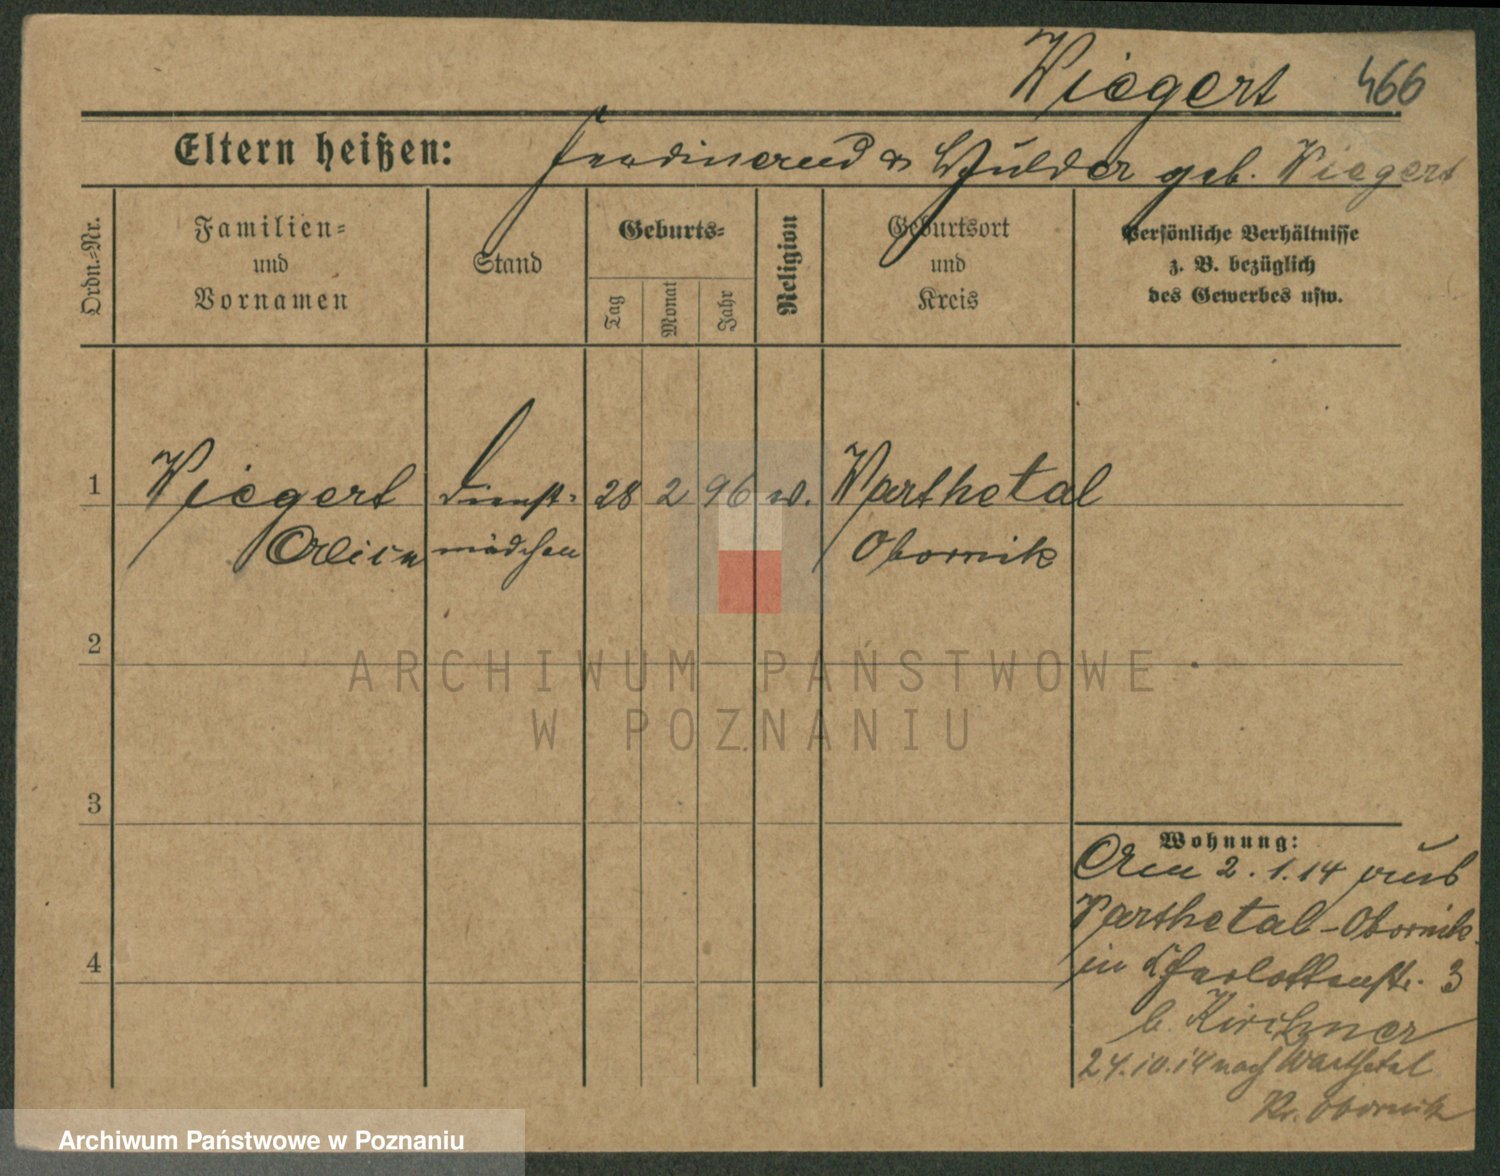 Wiegert 466
Eltern heißen: Ferdinand u. Hulda geb. Wiegert
Ordn.-Nr.
Familien-
und
Vornamen
Stand
Geburts-
Tag
Monat
Jahr
Religion
Geburtsort
und
Kreis
Persönliche Verhältnisse
z. B. bezüglich
des Gewerbes usw.
1 Wiegert Dienst- 28 2 96 Warthetal
mädchen Obornik
2
3
4
Wohnung:
Am 2.1.14 aus
Warthetal-Obornik
in Charlottenstr. 3
b. Kirchner
24.10.14 nach Warthetal
Kr. Obornik
ARCHIWUM PAŃSTWOWE
W POZNANIU
Archiwum Państwowe w Poznaniu